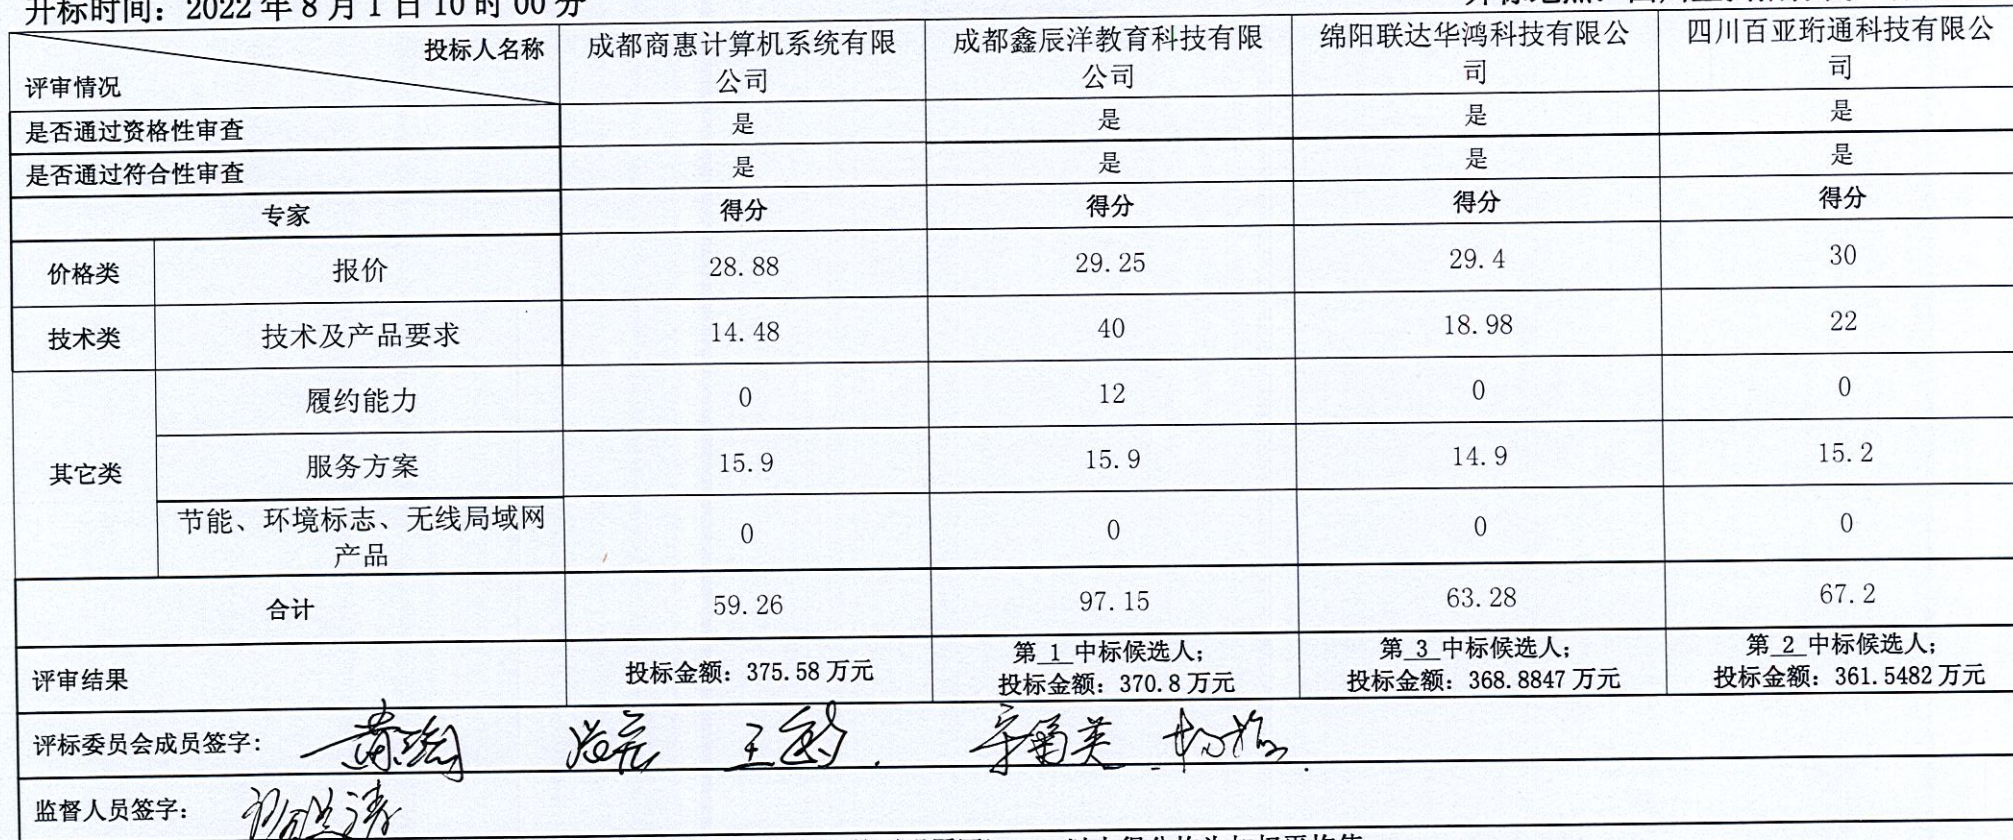 开标时间：2022 年 8 月 1 日 10 时 00 分
投标人名称
评审情况
成都商惠计算机系统有限
公司
成都鑫辰洋教育科技有限
公司
绵阳联达华鸿科技有限公
司
四川百亚珩通科技有限公
司
是否通过资格性审查 是 是 是 是
是否通过符合性审查 是 是 是 是
专家 得分 得分 得分 得分
价格类 报价 28.88 29.25 29.4 30
技术类 技术及产品要求 14.48 40 18.98 22
其它类
履约能力 0 12 0 0
服务方案 15.9 15.9 14.9 15.2
节能、环境标志、无线局域网
产品
0 0 0 0
合计 59.26 97.15 63.28 67.2
评审结果
投标金额：375.58 万元
第 1 中标候选人；
投标金额：370.8 万元
第 3 中标候选人；
投标金额：368.8847 万元
第 2 中标候选人；
投标金额：361.5482 万元
评标委员会成员签字：
监督人员签字：